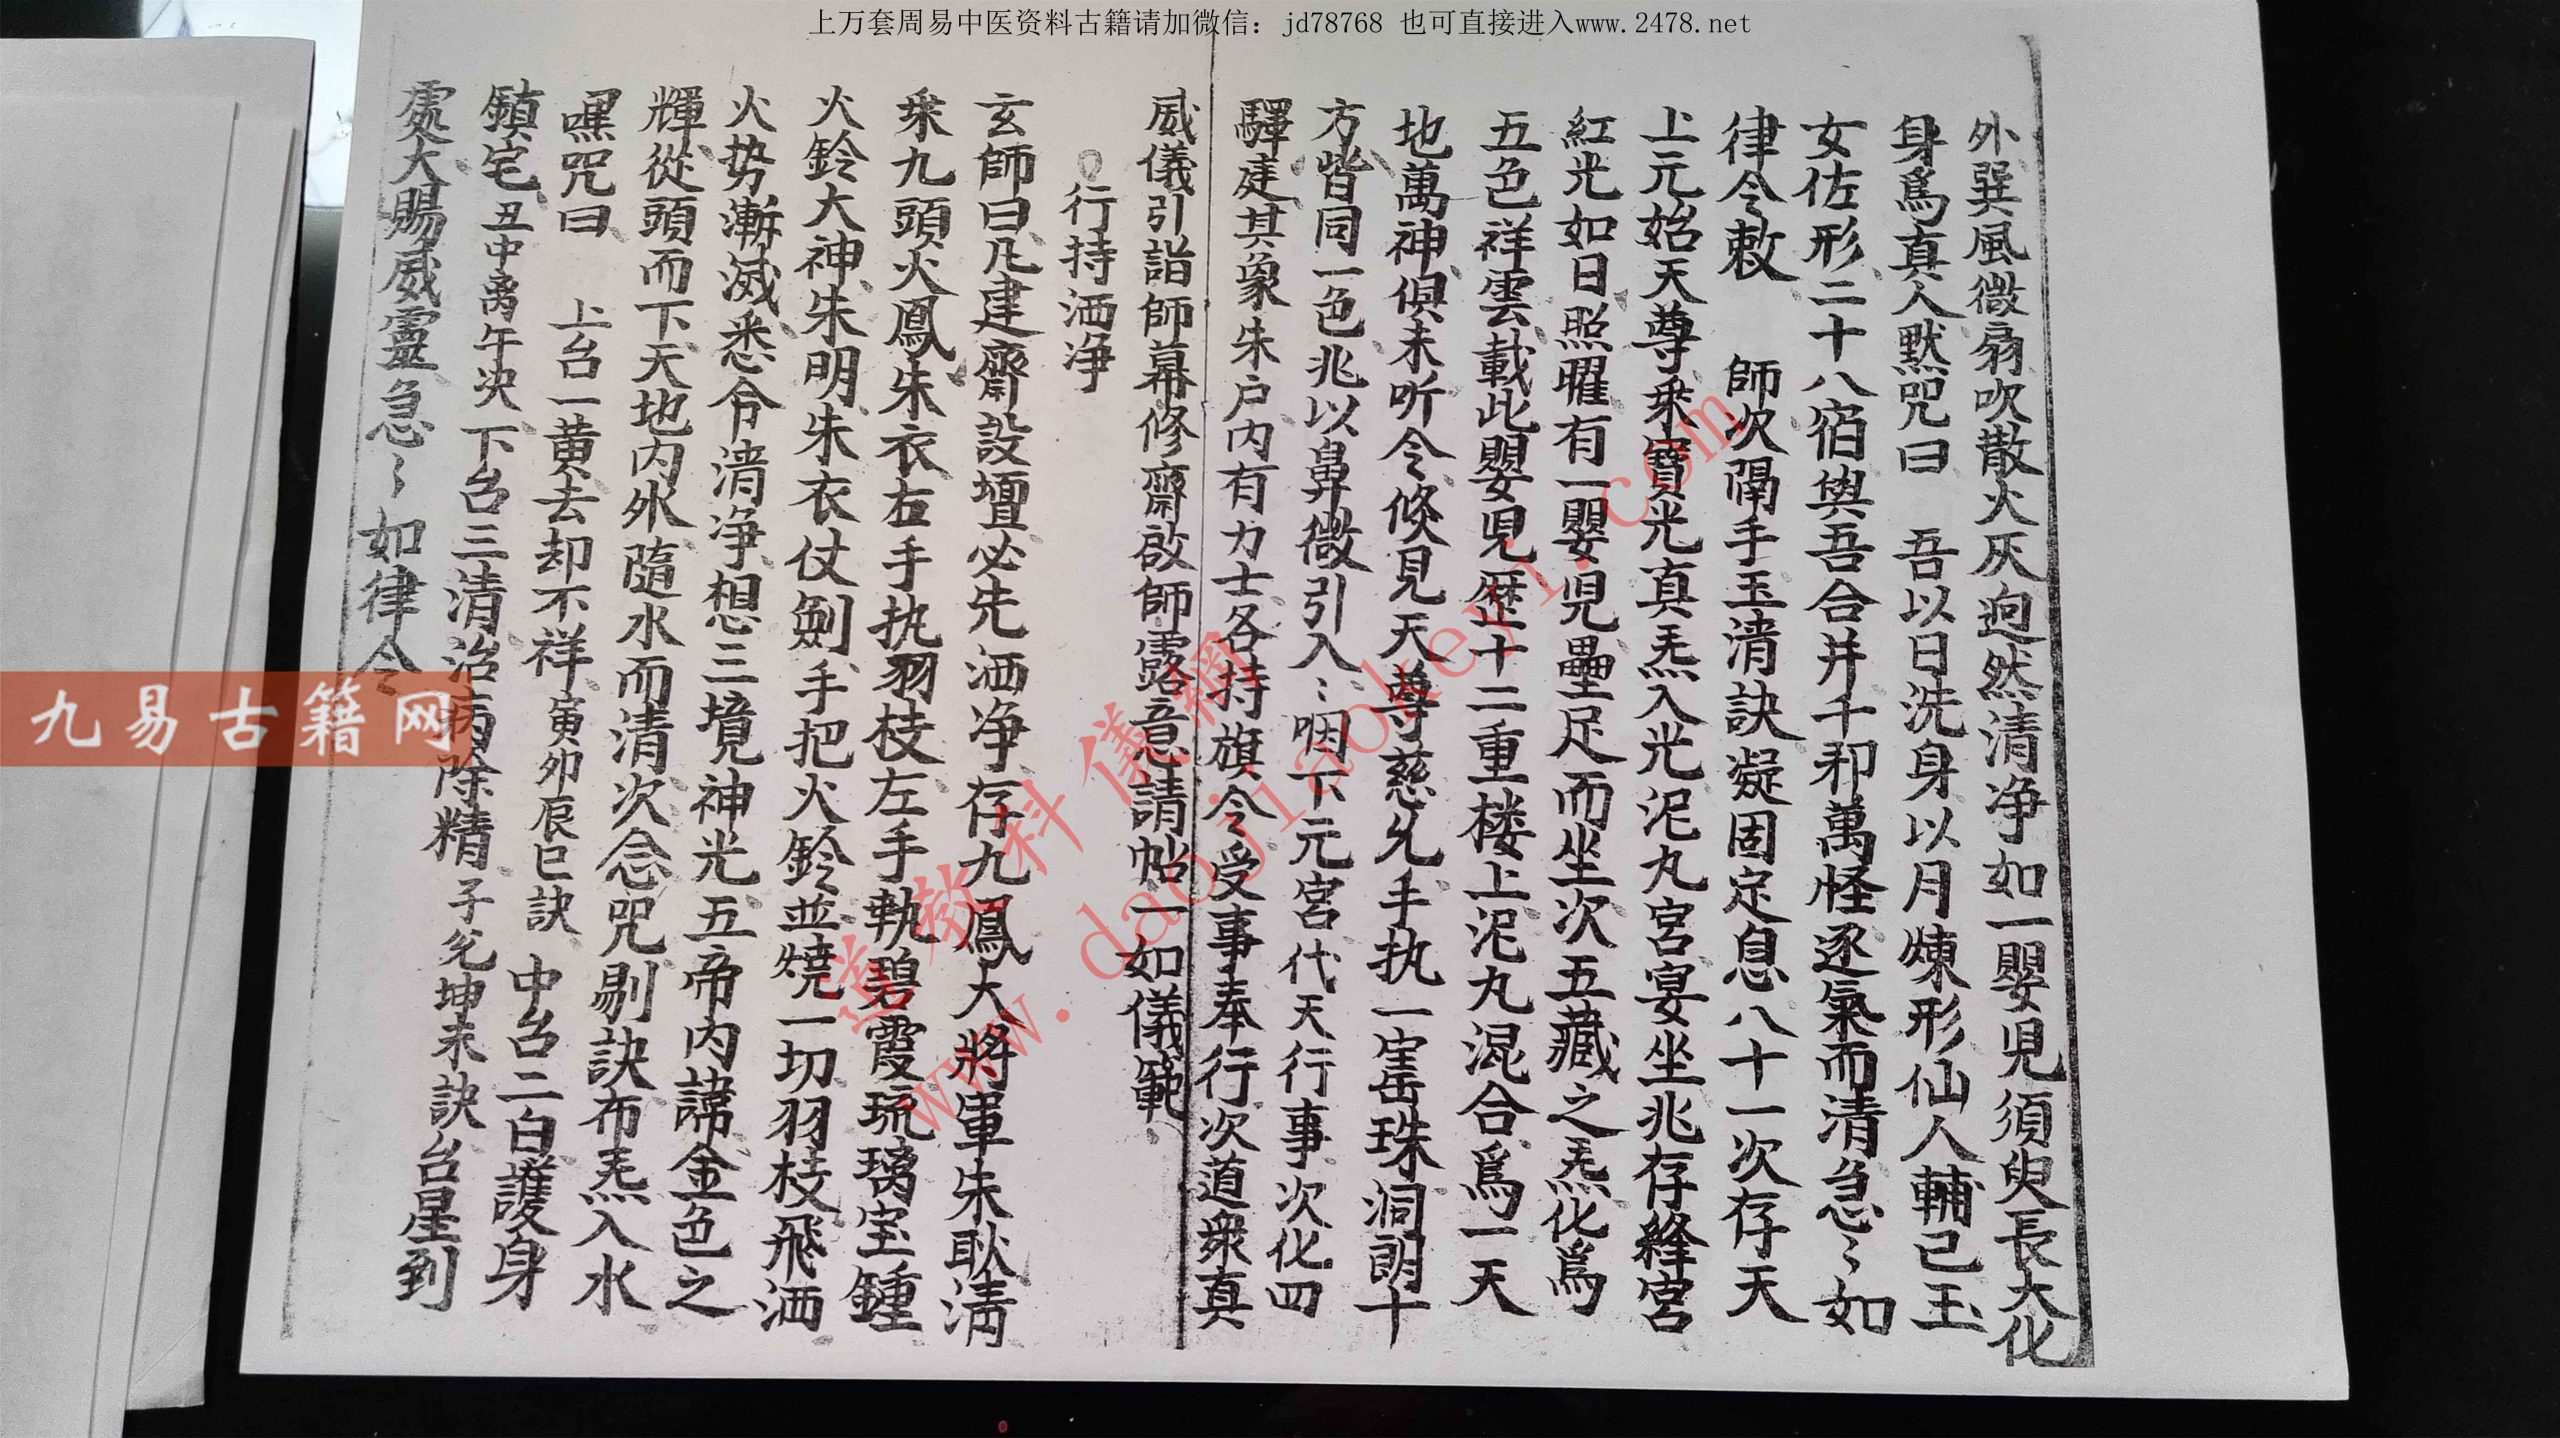 上万套周易中医资料古籍请加微信：jd78768 也可直接进入www.2478.net
外巽風微扇吹散火灰迥然清净如一嬰児須臾長大化
身爲真人黙咒曰 吾以日洗身以月煉形仙人輔己玉
女佐形二十八宿與吾合并千邪萬怪逐氣而清急〻如
律令敕 師次隔手玉清訣凝固定息八十一次存天
上元始天尊乘寶光真炁入光泥丸宮宴坐兆存絳宮
紅光如日照曜有一嬰児壘足而坐次五藏之炁化爲
五色祥雲載此嬰児歷十二重楼上泥丸混合爲一天
地萬神俱未听令倏見天尊慈允手执一宝珠洞朗十
方皆同一色兆以鼻微引入〻咽下元宮代天行事次化四
驛建其象朱户内有力士各持旗令受事奉行次道衆真
威儀引詣師幕修齋啟師露意請帖一如儀範
行持洒净
玄師曰凡建齋設壇必先洒净存九鳳大將軍朱耿清
乘九頭火鳳朱衣右手执羽枝左手執碧霞琉璃宝鍾
火鈴大神朱明朱衣仗劍手把火鈴並燒一切羽枝飛洒
火势漸滅悉令清净想三境神光五帝内諱金色之
輝從頭而下天地内外隨水而清次念咒剔訣布炁入水
嘿咒曰 上台一黄去却不祥寅卯辰巳訣 中台二白護身
鎮宅丑中离午次下台三清治病除精子兊坤未訣台星到
處大賜威靈急〻如律令
九易古籍网
道教科儀網
www.daojiaokeyi.com